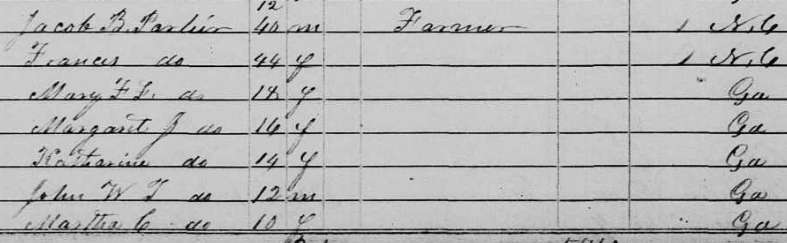 12
Jacob B. Parlier 40 m Farmer 1 N.C
Frances do 44 f 1 N.C
Mary F L. do 18 f Ga
Margaret J do 16 f Ga
Katharine do 14 f Ga
John W T do 12 m Ga
Martha C do 10 f Ga